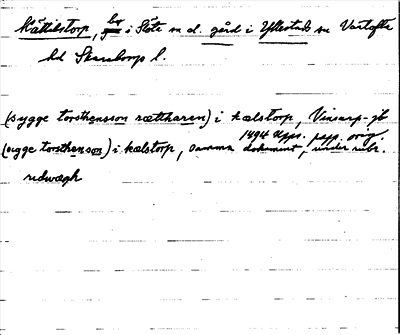 Kättilstorp, by i Slöta sn o. gård i Yllestads sn Vartofta
hd Skaraborgs l.
(sygge torsthensson rættharen) i kælstorp, Vinsarp-jb
1494 Upps. papp. orig.
(sigge torsthenson) i kælstorp, samma dokument, under rubr.
redwægh